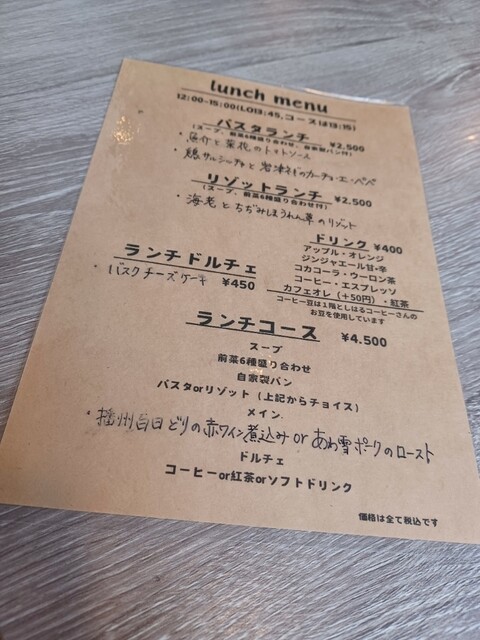 lunch menu
12:00-15:00(LO13:45、コースは13:15)
パスタランチ ¥2,500
(スープ、前菜6種盛り合わせ、自家製パン付)
・魚介と菜花のトマトソース
・鶏サルシッチャと岩津ねぎのカーチョ・エ・ペペ
リゾットランチ ¥2,500
(スープ、前菜6種盛り合わせ付)
・海老とちぢみほうれん草のリゾット
ドリンク ¥400
アップル・オレンジ
ジンジャエール甘・辛
コカコーラ・ウーロン茶
コーヒー・エスプレッソ
カフェオレ(+50円)・紅茶
コーヒー豆は1階としはるコーヒーさんの
お豆を使用しています
ランチドルチェ
・バスクチーズケーキ ¥450
ランチコース ¥4.500
スープ
前菜6種盛り合わせ
自家製パン
パスタorリゾット(上記からチョイス)
メイン
・播州百日どりの赤ワイン煮込み or あわ雪ポークのロースト
ドルチェ
コーヒーor紅茶orソフトドリンク
価格は全て税込です